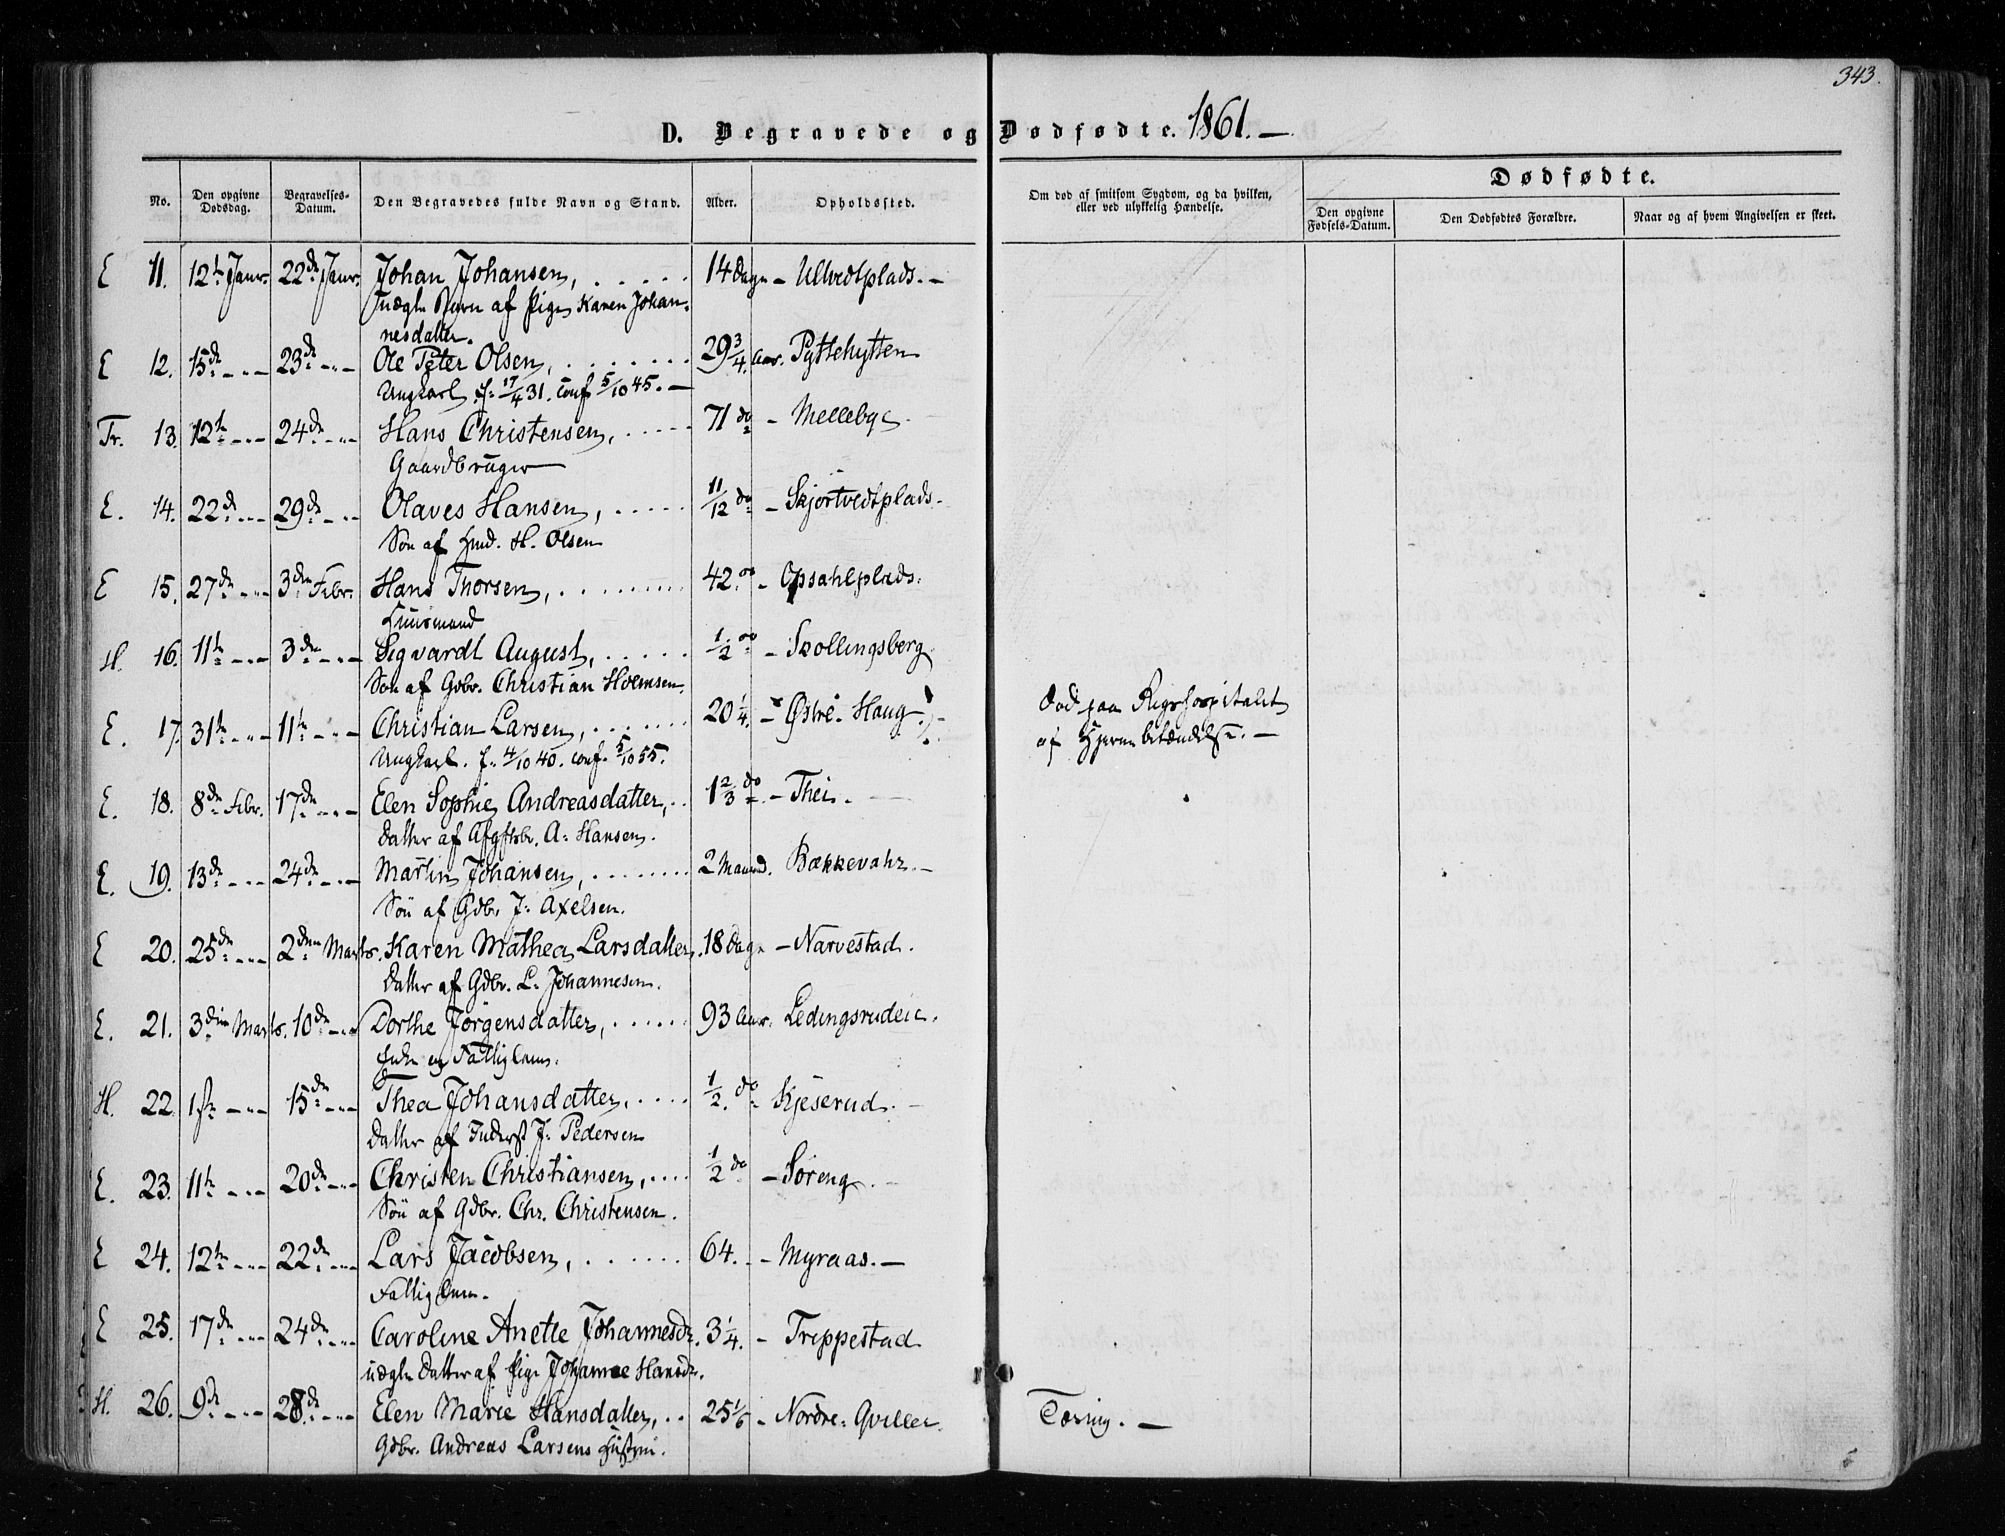 343.
D. Begravede og Dødfødte. 1861. —
No. Den opgivne Dødsdag. Begravelses-Datum. Den Begravedes fulde Navn og Stand. Alder. Opholdssted. Om død af smitsom Sygdom, og da hvilken, eller ved ulykkelig Hændelse. Dødfødte.
Den opgivne Fødsels-Datum. Den Dødfødtes Forældre. Naar og af hvem Angivelsen er skeet.
E 11. 12te Janr. 22de Janr. Johan Johansen, . . . . . 14 Dage - Ullvedtplads. -
uægte Barn af Pige Karen Johan-
nesdatter.
E 12. 15de -"- 23de -"- Ole Peter Olsen, . . . . . 29 3/4 Aar. Pyttehytten
Ungkarl f. 17/4 31. conf 5/10 45. —
Fr. 13. 12te -"- 24de -"- Hans Christensen, . . . . 71 do - Mellebye
Gaardbruger
E. 14. 22de -"- 29de -"- Olaves Hansen, . . . . . 11/12 do - Skjortvedtplads.
Søn af Hmd. H. Olsen
E 15. 27de -"- 3die Febr. Hans Thorsen, . . . . . . 42. do - Opsahlplads.
Huusmand
H. 16. 11te -"- 3die -"- Sigvardt August, . . . . . 1/2 do - Skollingsberg
Søn af Gdbr. Christian Holmsen.
E. 17. 31te -"- 11te -"- Christian Larsen, . . . . . 20 1/4. - Østre-Haug. Død paa Rigshospitalet
Ungkarl. f. 4/10 40. conf. 5/10 55. af Hjernebetændelse. —
E. 18. 8de Febr. 17de -"- Elen Sophie Andreasdatter, . . 1 2/3 do. - Thei.
Datter af A. Hansen.
E. 19. 13de -"- 24de -"- Martin Johansen, . . . . . . 2 Maaned. Bækkevahr. -
Søn af Gdbr. J. Axelsen.
E 20. 25de -"- 2den Marts. Karen Mathea Larsdatter, 18 Dage - Narvestad.
Datter af Gdbr. L. Johannesen.
E. 21. 3die Marts. 10de -"- Dorthe Jørgensdatter, . . . . . 93 Aar. Ledingsrudeie.
Enke og Fattiglem.
H. 22. 1ste -"- 15de -"- Thea Johansdatter, . . . . 1/2. do - Kjeserud. -
Datter af Inderst J. Pedersen
E. 23. 11te -"- 20de -"- Christen Christiansen, . . . . 1/2 do - Søreng. -
Søn af Gdbr. Chr. Christensen.
E 24. 12te -"- 22de -"- Lars Jacobsen, . . . . . 64. - Myraas. —
Fattiglem.
E 25. 17de -"- 24de -"- Caroline Anette Johannesdr. 3 1/4. - Treppestad
uægte Datter af Pige Johanne Hansdr.
H. 26. 9de -"- 28de -"- Elen Marie Hansdatter, . . 25 1/6 - Nordre-Qviller. Tæring. —
Gdbr. Andreas Larsens Hustru.